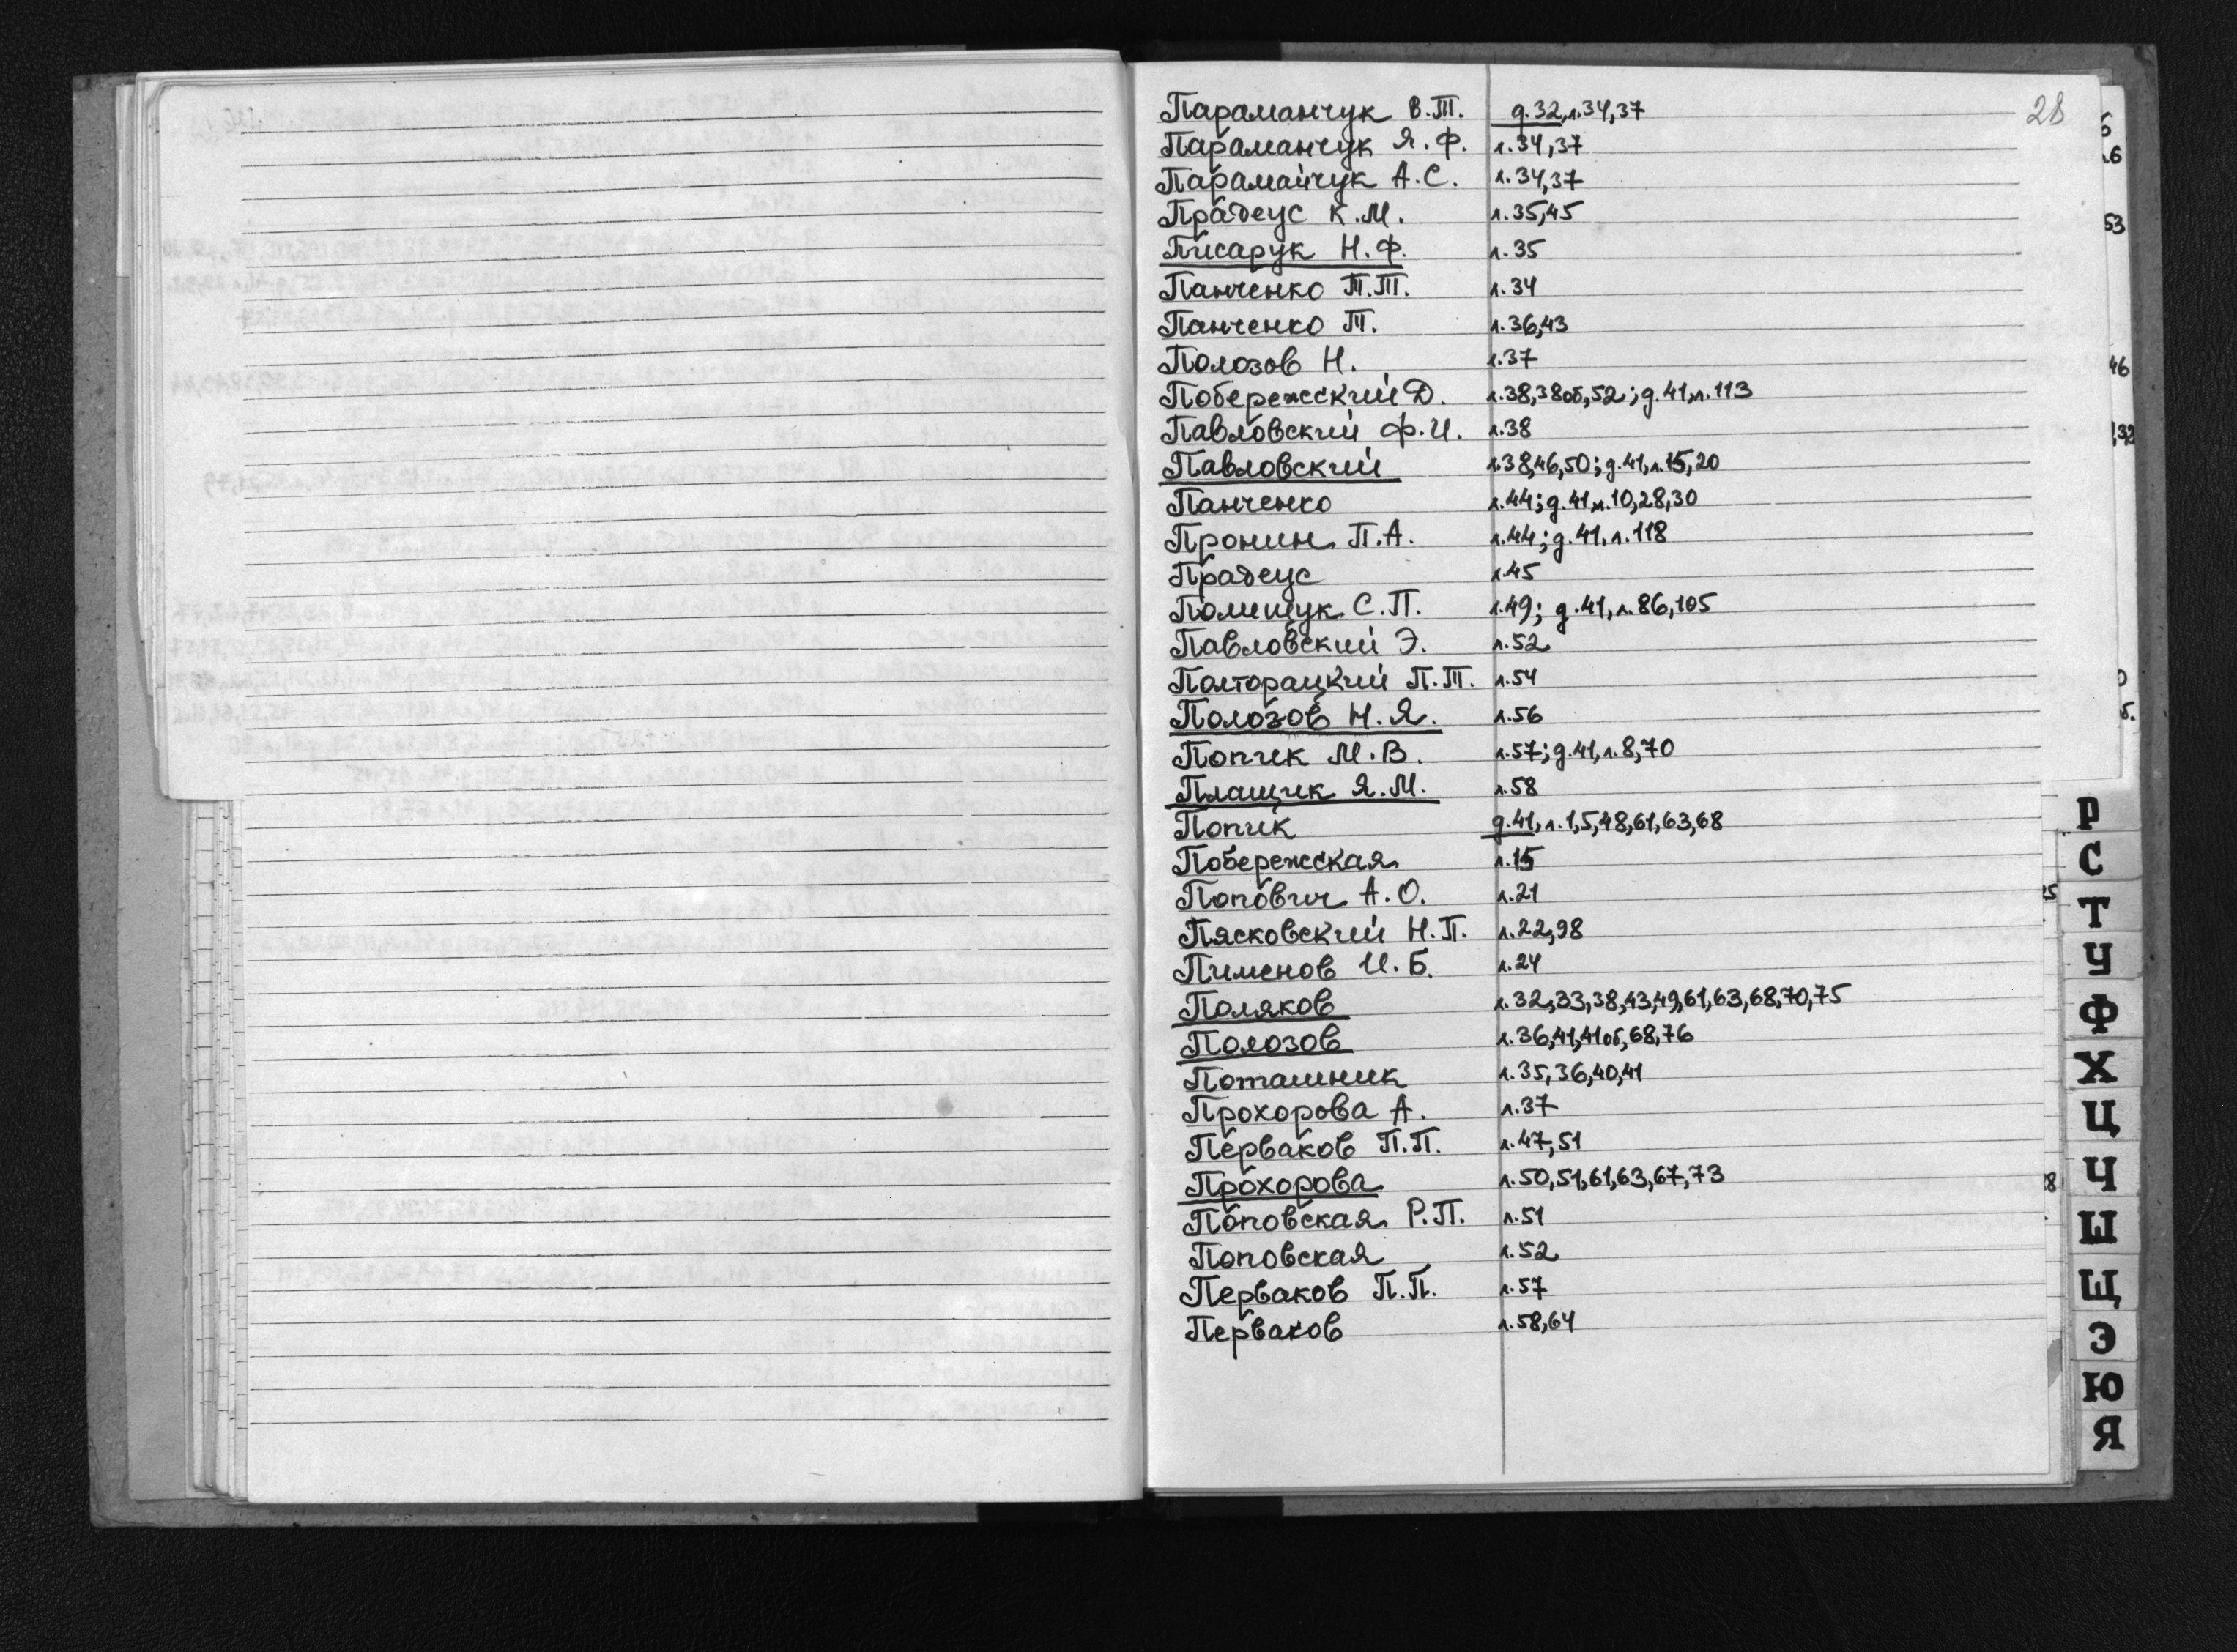 28
Параманчук В.Т. д.32,л.34,37
Параманчук Я.Ф. л.34,37
Параманчук А.С. л.34,37
Прадеус К.М. л.35,45
Писарук Н.Ф. л.35
Панченко Т.Т. л.34
Панченко Т. л.36,43
Полозов Н. л.37
Побережский Д. л.38,38об,52; д.41,л.113
Павловский Ф.И. л.38
Павловский л.38,46,50; д.41,л.15,20
Панченко л.44; д.41,л.10,28,30
Пронин П.А. л.44; д.41,л.118
Прадеус л.45
Полищук С.П. л.49; д.41,л.86,105
Павловский Э. л.52
Полторацкий П.Т. л.54
Полозов Н.Я. л.56
Попик М.В. л.57; д.41,л.8,70
Плащик Я.М. л.58
Попик д.41,л.1,5,48,61,63,68
Побережская л.15
Попович А.О. л.21
Пясковский Н.П. л.22,98
Пименов И.Б. л.24
Поляков л.32,33,38,43,49,61,63,68,70,75
Полозов л.36,41,41об,68,76
Поташник л.35,36,40,41
Прохорова А. л.37
Перваков П.П. л.47,51
Прохорова л.50,51,61,63,67,73
Поповская Р.П. л.51
Поповская л.52
Перваков П.П. л.57
Перваков л.58,64
Р
С
Т
У
Ф
Х
Ц
Ч
Ш
Щ
Э
Ю
Я